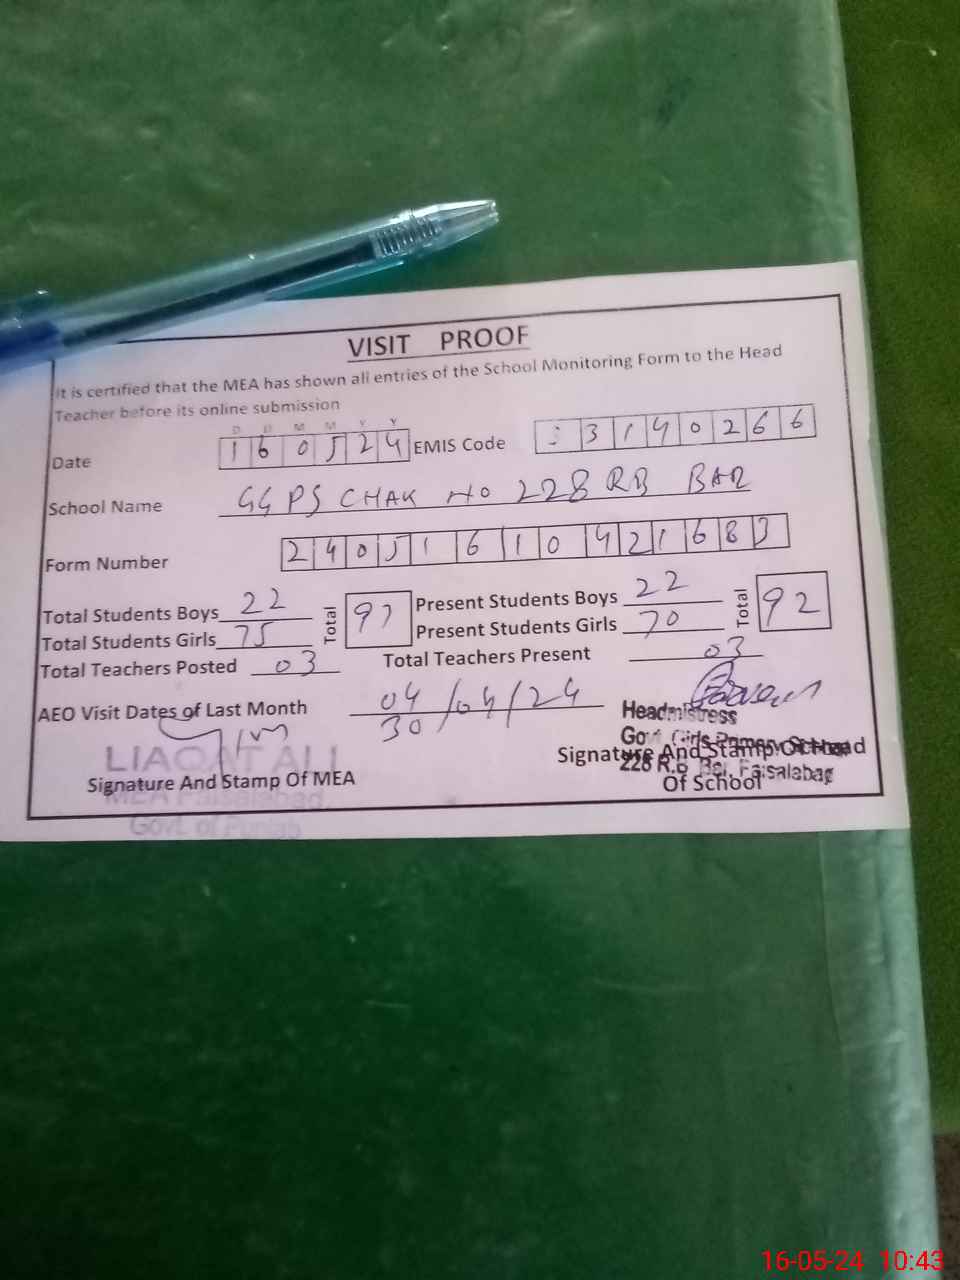 VISIT PROOF
It is certified that the MEA has shown all entries of the School Monitoring Form to the Head
Teacher before its online submission
D D M M Y Y
Date 160524 EMIS Code 3190266
School Name GGPS CHAK NO 228 RB BAR
Form Number 24051610421683
Total Students Boys 22 Total 97 Present Students Boys 22 Total 92
Total Students Girls 75 Present Students Girls 70
Total Teachers Posted 03 Total Teachers Present 03
AEO Visit Dates of Last Month 04/04/24
30
Headmistress
Govt Girls Primary School
228 R.B Bar, Faisalabad
Signature And Stamp Of Head
Of School
LIAQAT ALI
Signature And Stamp Of MEA
MEA Faisalabad
Govt. of Punjab
16-05-24 10:43